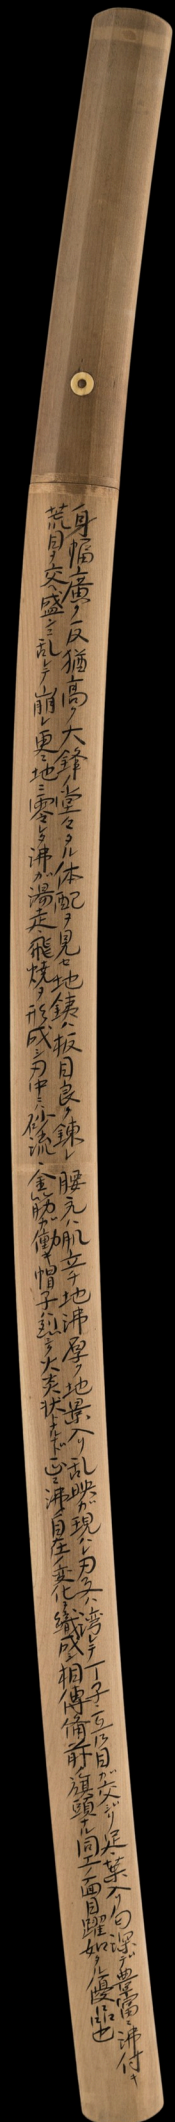 身幅廣ク反猶高ク大鋒ノ堂々タル体配ヲ見セ地鉄ハ板目良ク錬レ腰元ハ肌立チ地沸厚ク地景入リ乱映ガ現ハレ刃文ハ湾レテ丁子ニ互の目ガ交ジリ足葉入リ匂深ク豊富ニ沸付キ
荒目ヲ交ヘ盛ンニ乱レテ崩レ更ニ地ニ零レタ沸ガ湯走飛焼ヲ形成シ刃中ニハ砂流金筋ガ働キ帽子ハ烈シク火炎状トナルナド正ニ沸自在ノ変化ニ織成ス相傳備前ノ旗頭タル同工ノ面目躍如タル優品也